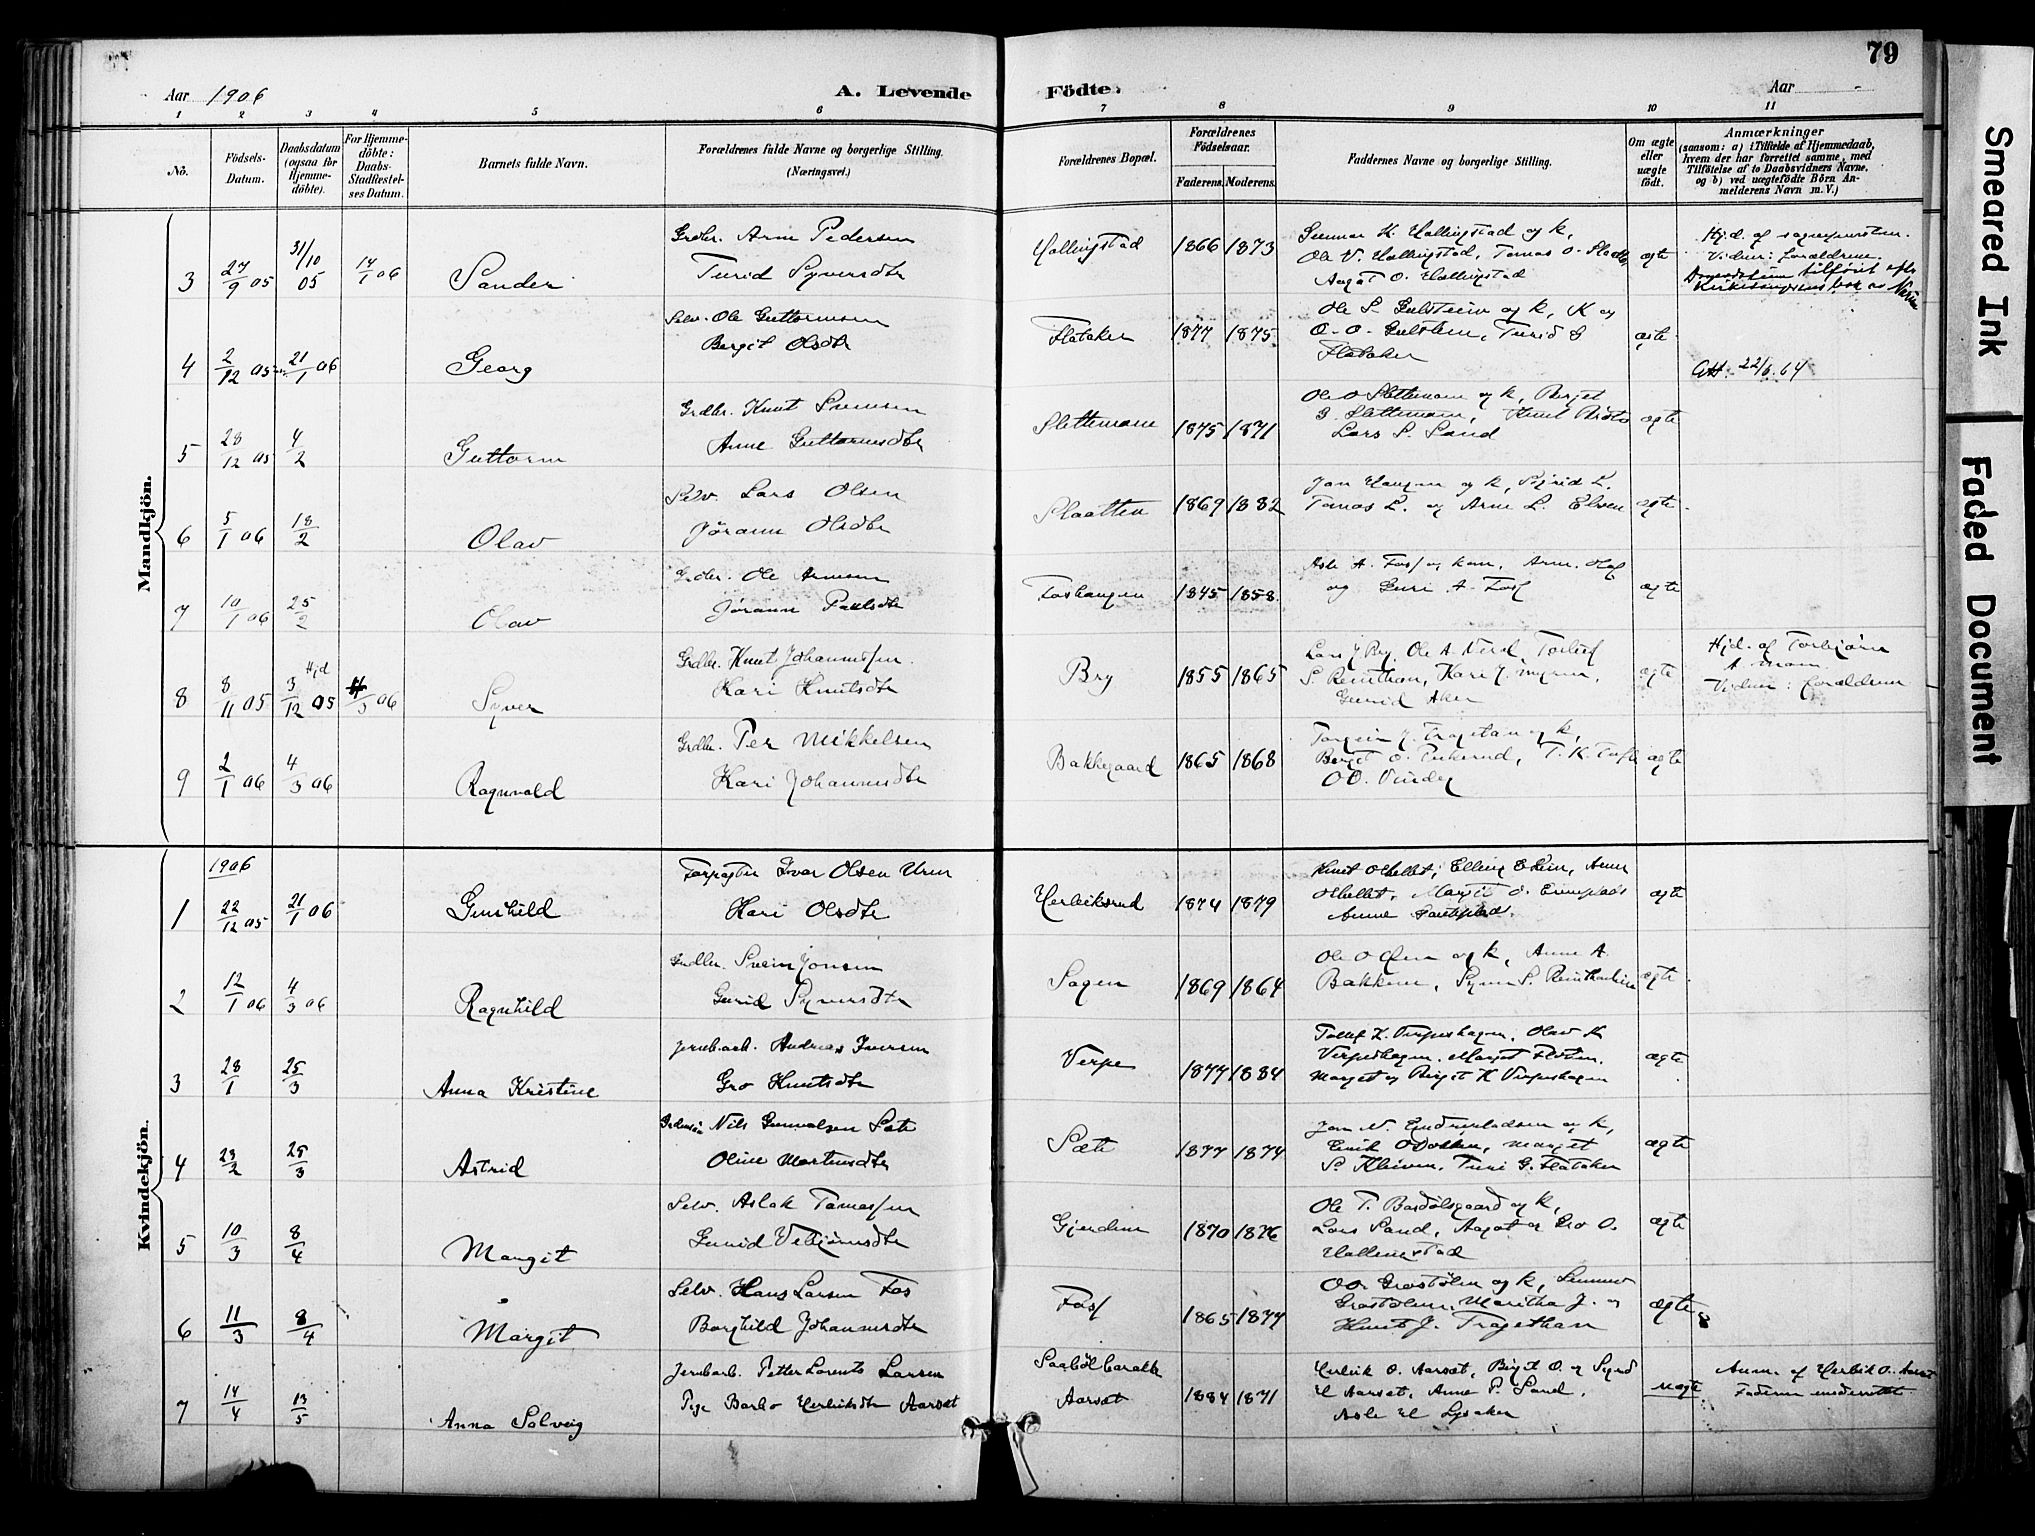 79
Aar 1906
A. Levende Födte.
Aar -
1 2 3 4 5 6 7 8 9 10 11
No.
Födsels-Datum.
Daabsdatum (ogsaa for Hjemme-döbte).
For Hjemme-döbte: Daabs-Stadfæstel-ses Datum.
Barnets fulde Navn.
Forældrenes fulde Navne og borgerlige Stilling.
(Næringsvei.)
Forældrenes Bopæl.
Forældrenes Födselsaar.
Faderens. Moderens.
Faddernes Navne og borgerlige Stilling.
Om ægte eller uægte födt.
Anmærkninger
(saasom: a) i Tilfælde af Hjemmedaab,
hvem der har forrettet samme, med
Tilföielse af to Daabsvidners Navne,
og b) ved uægtefödte Börn An-
melderens Navn m. V.)
Mandkjön.
3 27/9 05 31/10 05 14/1 06 Sander
Grdbr. Arne Pedersen
Turid Syversdtr
Hallingstad 1866 1873
Gunnar K. Hallingstad og k,
Ole V. Hallingstad, Tomas O.
Aagot O. Hallingstad
ægte
Hjd. af sognepresten.
Vidner: forældrene.
4 2/12 05 21/1 06 Georg
Selv. Ole Guttormsen
Bergit Olsdtr
Flataker 1877 1875
Ole S. Gulstein og k, K og
O. O. Gulstein, Turid G
Flataker
ægte
Att. 22/6.64
5 28/12 05 4/2 Guttorm
Grdbr. Knut Svensen
Anne Guttormsdtr
Slettemoen 1875 1871
Ole O Slettemoen og k, Berget
G. Slettemoen, Knut
Lars S. Sand
ægte
6 5/1 06 18/2 Olav
Selv Lars Olsen
Jørann Olsdtr
Plaatten 1869 1882
Jan Haugen og k, Sigrid L.
Tomas L. og Arne L. Elven
ægte
7 10/1 06 25/2 Olav
Grdbr. Ole Arnesen
Jørann Paulsdtr
Foshaugen 1845 1858
Asle A. Foss og kone, Arne, Olaf
og Guri A. Foss
ægte
8 8/11 05 3/12 05 Hjd 4/3 06 Syver
Grdbr. Knut Johannessen.
Kari Knutsdtr
Bry 1855 1865
Lars J Bry, Ole A. Torleif
S. Reinthan, Kari J. Myren,
Gunrid Aker
ægte
Hjd. af Torbjørn
A Moen
Vidner: forældrene
9 2/1 06 4/3 06 Ragnvald
Grdbr. Per Mikkelsen
Kari Johannesdtr
Bakkegaard 1865 1868
Torgeir J. Trageton og k,
Berget O. T. K. Foss
O O. Vindeg
ægte
Kvindekjön.
1906
1 22/12 05 21/1 06 Gunhild
Forpagter Ivar Olsen Uren
Kari Olsdtr
Herbiksrud 1874 1879
Knut Olhellet, Elling E Lien, Anne
Olhellet, Margit O.
Anne
ægte
2 12/1 06 4/3 06 Ragnhild
Grdbr. Svein Jonsen
Gunrid Syversdtr
Sagen 1869 1864
Ole O Olsen og k, Anne A.
Bakkene, Synne S.
ægte
3 28/1 25/3 Anna Kristine
Jernbarb. Andreas Iversen
Gro Knutsdtr
Verpe 1877 1884
Tollef K. Verpeshagen, Olav K
Verpeshagen, Marget Flaten,
Marget og Birget K Verpeshagen
ægte
4 23/2 25/3 Astrid
Nils Gunvalsen Sæte
Oline Martinsdtr
Sæte 1877 1874
Jon N. og k,
Eirik O Dokken, Marget
S. Kleiven, Turi G. Flataker
ægte
5 10/3 8/4 Margit
Selv. Aslak Tomassen
Gunrid Vebjørnsdtr
Gjerden 1870 1876
Ole T. Bardølsgaard og k,
Lars Sand, Aagot og Gro O.
Hallingstad
ægte
6 11/3 8/4 Margit
Selv. Hans Larsen Fos
Borghild Johannesdtr
Foss 1865 1877
O O. Grostølen og k, Gunnar
Grostølen, Maritha J. og
Knut J. Tragethan
ægte
7 14/4 13/5 Anna Solveig
Jernbarb. Petter Lorents Larsen
Pige Barbo Herbiksdtr Aarset
Saabølbarakke
Aarset 1884 1871
Herbik O. Aarset, Birget O. og Synd
H Aarset, Anne P. Sand,
Asle H Lysaker
uægte
Anm. af Herbik O. Aarset
Faderen
Smeared Ink
Faded Document